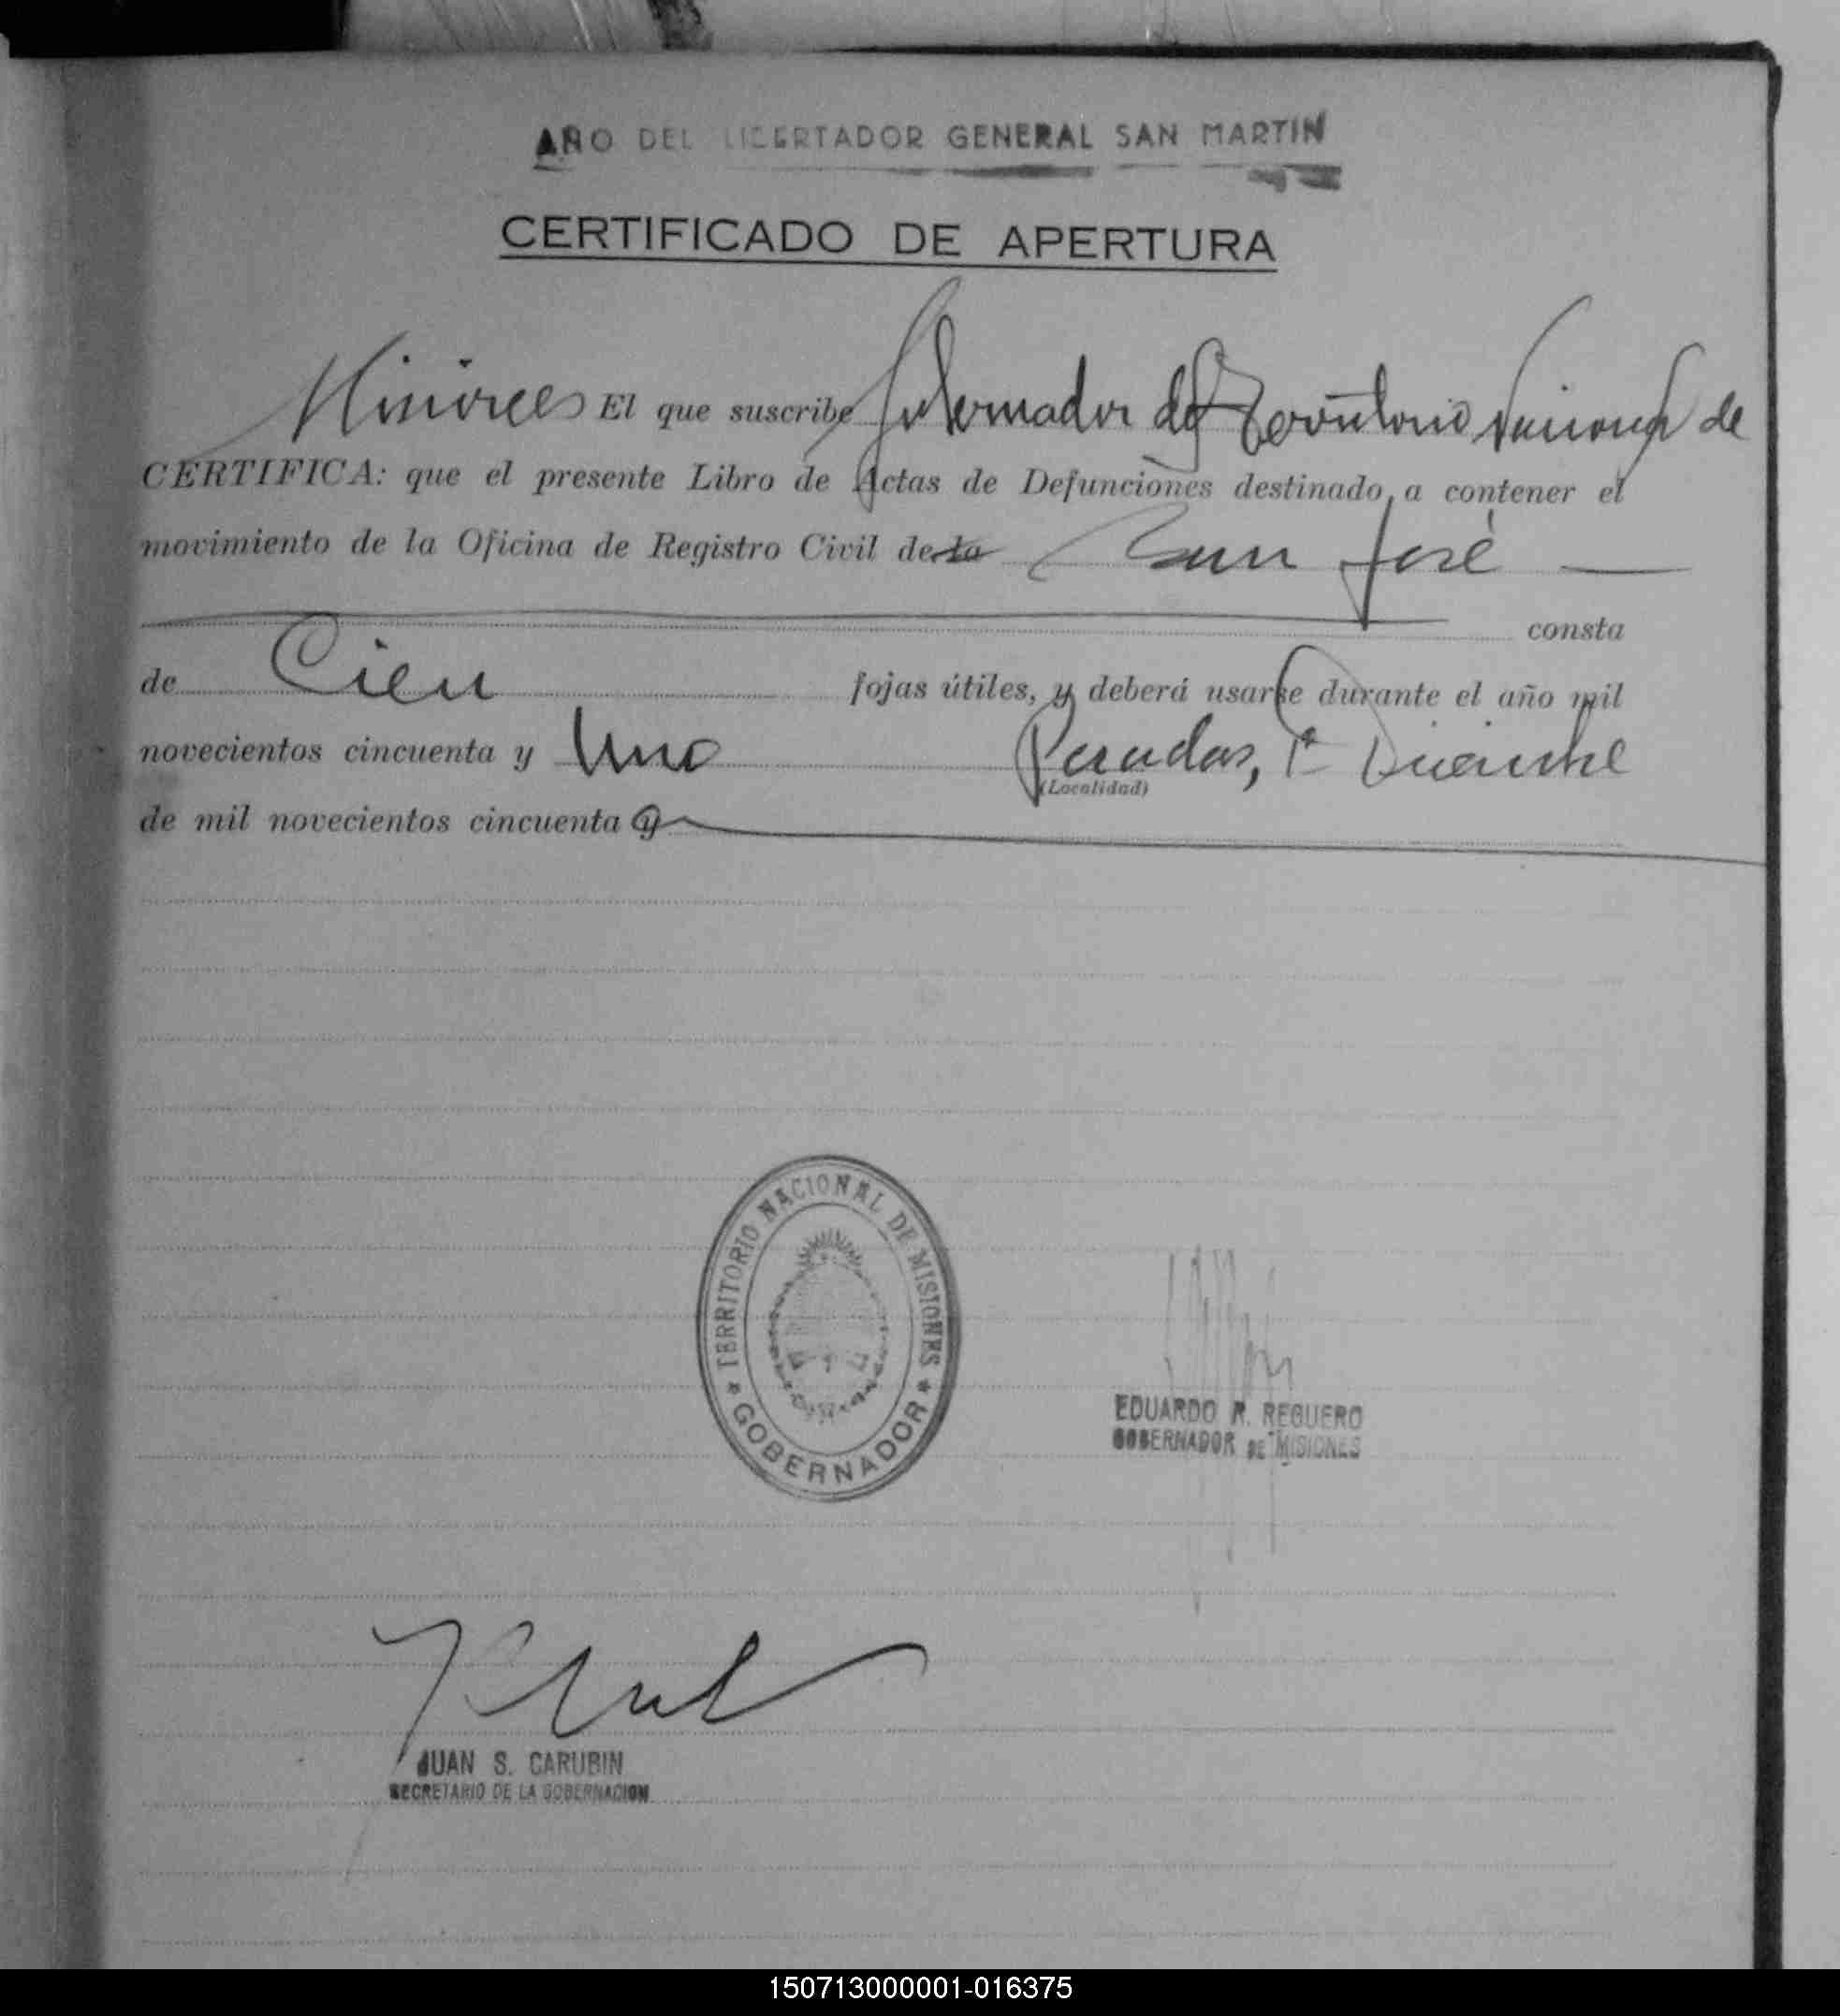 AÑO DEL LIBERTADOR GENERAL SAN MARTIN
CERTIFICADO DE APERTURA
El que suscribe Gobernador del Territorio Nacional de
Misiones
CERTIFICA: que el presente Libro de Actas de Defunciones destinado a contener el
movimiento de la Oficina de Registro Civil de la San José
consta
de Cien fojas útiles, y deberá usarse durante el año mil
novecientos cincuenta y Uno Posadas, 1º Diciembre
(Localidad)
de mil novecientos cincuenta y
TERRITORIO NACIONAL DE MISIONES
GOBERNADOR
EDUARDO R. REGUERO
GOBERNADOR DE MISIONES
JUAN S. CARUBIN
SECRETARIO DE LA GOBERNACION
150713000001-016375